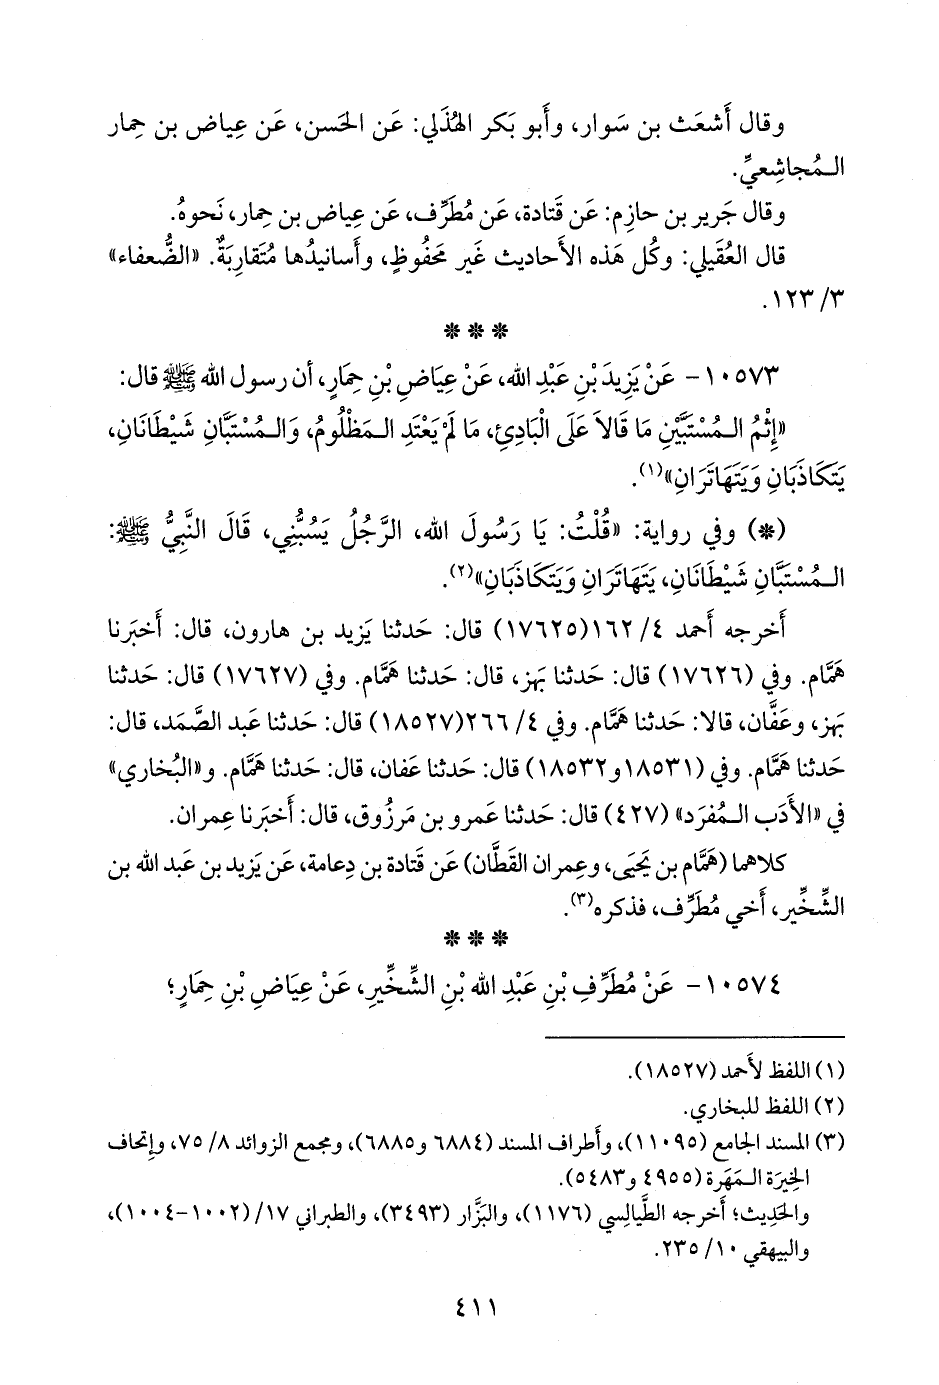 وقال أَشعَث بن سَوار، وأَبو بَكر الهُذَلي: عَن الحَسن، عَن عِياض بن حِمار
المُجاشِعيِّ.
وقال جَرير بن حازِم: عَن قَتادة، عَن مُطَرِّف، عَن عِياض بن حِمار، نَحوهُ.
قال العُقَيلي: وكُل هَذه الأَحاديث غَير مَحفُوظٍ، وأَسانيدُها مُتَقارِبَةٌ. «الضُّعفاء»
٣/ ١٢٣.
* * *
١٠٥٧٣- عَنْ يَزِيدَ بْنِ عَبْدِ الله، عَنْ عِيَاضِ بْنِ حِمَارٍ، أن رسول الله ﷺ قال:
«إِثْمُ المُسْتَبَّيْنِ مَا قَالاَ عَلَى الْبَادِئِ، مَا لَمْ يَعْتَدِ المَظْلُومُ، وَالمُسْتَبَّانِ شَيْطَانَانِ،
يَتَكَاذَبَانِ وَيَتَهَاتَرَانِ»(١).
(*) وفي رواية: «قُلْتُ: يَا رَسُولَ الله، الرَّجُلُ يَسُبُّنِي، قَالَ النَّبِيُّ ﷺ:
المُسْتَبَّانِ شَيْطَانَانِ، يَتَهَاتَرَانِ وَيَتَكَاذَبَانِ»(٢).
أَخرجه أَحمد ٤/ ١٦٢(١٧٦٢٥) قال: حَدثنا يَزيد بن هارون، قال: أَخبَرنا
هَمَّام. وفي (١٧٦٢٦) قال: حَدثنا بَهز، قال: حَدثنا هَمَّام. وفي (١٧٦٢٧) قال: حَدثنا
بَهز، وعَفَّان، قالا: حَدثنا هَمَّام. وفي ٤/ ٢٦٦(١٨٥٢٧) قال: حَدثنا عَبد الصَّمَد، قال:
حَدثنا هَمَّام. وفي (١٨٥٣١ و١٨٥٣٢) قال: حَدثنا عَفان، قال: حَدثنا هَمَّام. و«البُخاري»
في «الأَدَب المُفرَد» (٤٢٧) قال: حَدثنا عَمرو بن مَرزُوق، قال: أَخبَرنا عِمران.
كلاهما (هَمَّام بن يَحيَى، وعِمران القَطَّان) عَن قَتادة بن دِعامة، عَن يَزيد بن عَبد الله بن
الشِّخِّير، أَخي مُطَرِّف، فذكره(٣).
* * *
١٠٥٧٤- عَنْ مُطَرِّفِ بْنِ عَبْدِ الله بْنِ الشِّخِّيرِ، عَنْ عِيَاضِ بْنِ حِمَارٍ؛
(١) اللفظ لأَحمد (١٨٥٢٧).
(٢) اللفظ للبخاري.
(٣) المسند الجامع (١١٠٩٥)، وأَطراف المسند (٦٨٨٤ و٦٨٨٥)، ومجمع الزوائد ٨/ ٧٥، وإِتحاف
الخِيرَة المَهَرة (٤٩٥٥ و٥٤٨٣).
والحَدِيث؛ أَخرجه الطَّيالِسي (١١٧٦)، والبَزَّار (٣٤٩٣)، والطبراني ١٧/(١٠٠٢-١٠٠٤)،
والبيهقي ١٠/ ٢٣٥.
٤١١